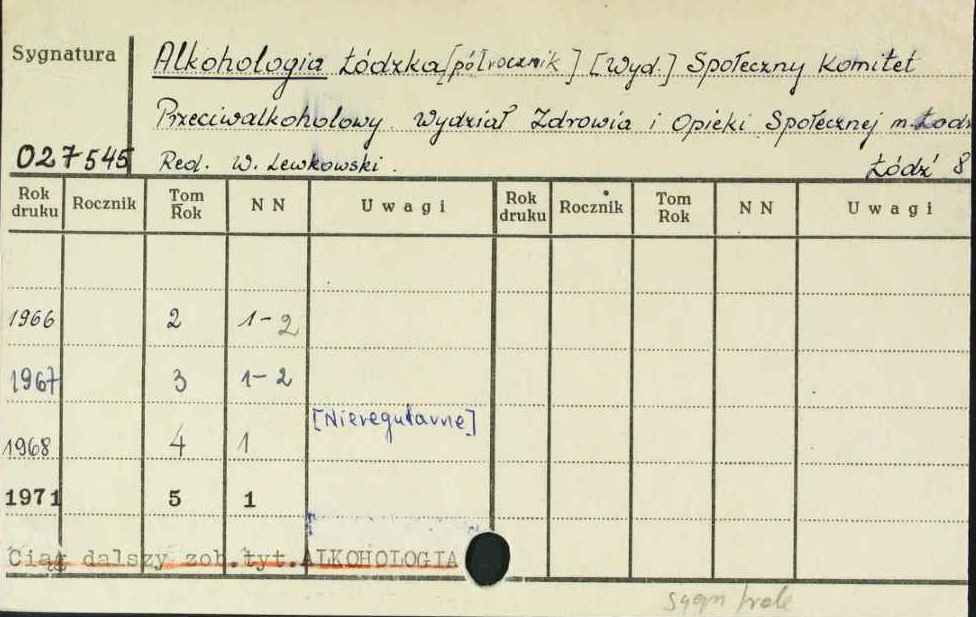 Sygnatura
Alkohologia Łódzka [półrocznik] [Wyd.] Społeczny Komitet
Przeciwalkoholowy. Wydział Zdrowia i Opieki Społecznej m. Łodz
027545 Red. W. Lewkowski. Łódź 8
Rok druku Rocznik Tom Rok N N Uwagi Rok druku Rocznik Tom Rok N N Uwagi
1966 2 1-2
1967 3 1-2
[Nieregularne]
1968 4 1
1971 5 1
Ciąg dalszy zob.tyt.ALKOHOLOGIA
sygn